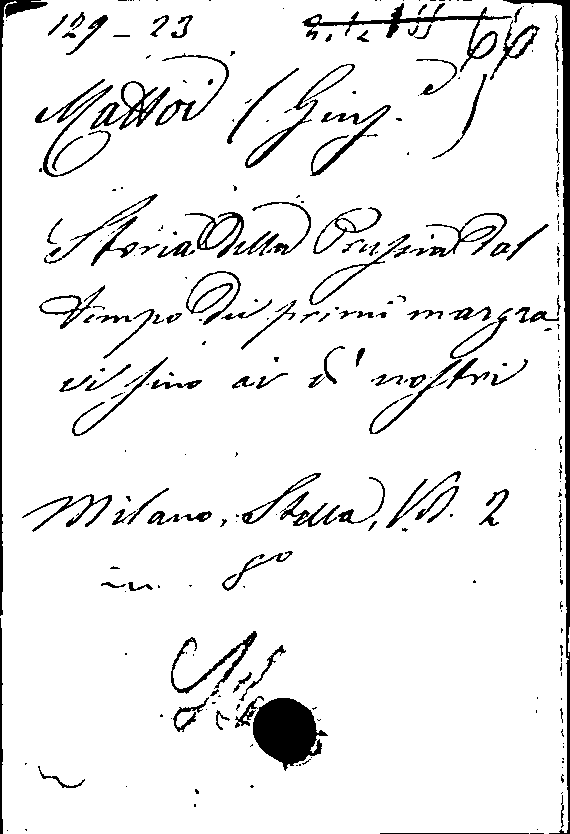 129-23 66
Mattoi (Giusˢ.ᵉ)
Storia della Prussia dal
tempo dei primi margra-
vi fino ai dì nostri
Milano, Stella, Vol. 2
in 8°